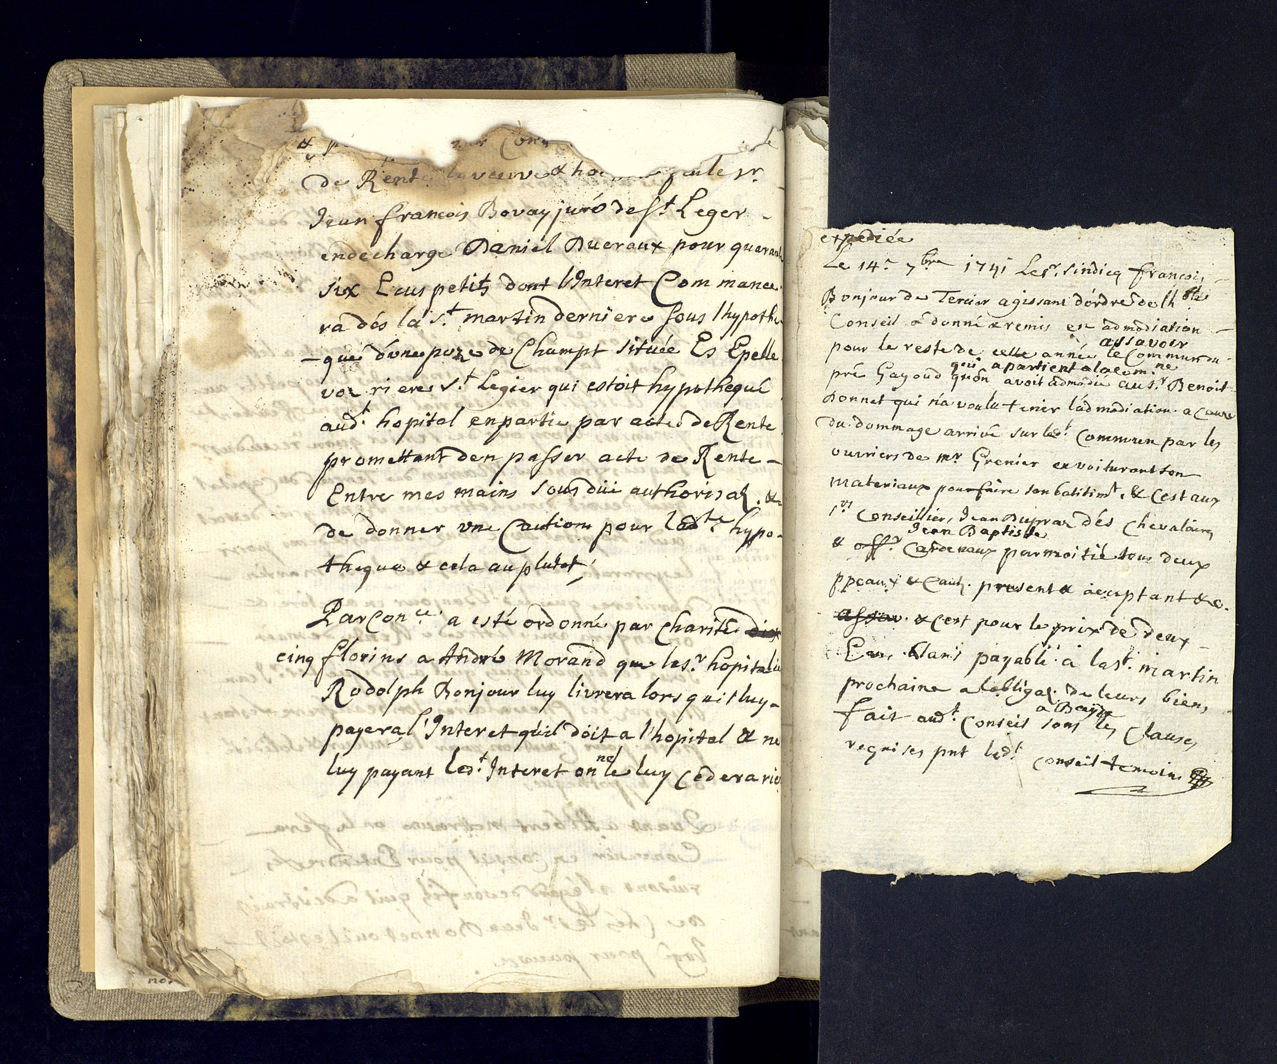 de Rente
Jean francois Bovay juré de st. Leger
en decharge Daniel Dueraux pour quarant
six Ecus petits dont l'Interet Commance
ra dés la St. martin derniere sous l'hypothe
-que d'une poze de Champt située Es Epelle
voz riere St. Legier qui estoit hypothequé
aud.t hopital en partie par acte de Rente
promettant d'en passer acte de Rente -
Entre mes mains sous düe authorisaõ. &
de donner une Caution pour lad.te hypo-
theque & cela au plutot;
Par Con.ce a esté ordonné par charité dix
cinq florins a André Morand que le Sr. hopitalie
Rodolph Bonjour luy livrera lors quil luy
payera l'Interet qu'il doit a l'hopital & ne
luy payant led.t Interet on ne le luy cedera rie
expediée
Le 14.e 7bre 1741 Le Sr. Sindicq francois
Bonjour de Tercier agissant d'ordre de lh.ble
Conseil a donné & remis en admodiation
assavoir
pour le reste de celle année le Commun du
qui apartient a la com.ne
pré Gayoud qu'on avoit admodié au Sr. Benoit
Bonnet qui n'a voulu tenir l'admodiation a cause
du dommage arrivé sur led.t Commun par les
ouvriers de mr. Grenier en voiturant son
materiaux pour faire son batitim.t & C'est aux
Srs Conseillier, Jean Dupraz dés Chevalaires
Jean Baptiste
& off.r Cardenaux par moitié tous deux
ppeaux & Cauõ. present & acceptant &c.
assav. & C'est pour le prix de deux
Ecus blans payable a la st. martin
prochaine a l'obligaõ. de leurs biens,
a Baugy
fait aud.t Conseil sous les Clauses
requises pnt led.t Conseil temoins